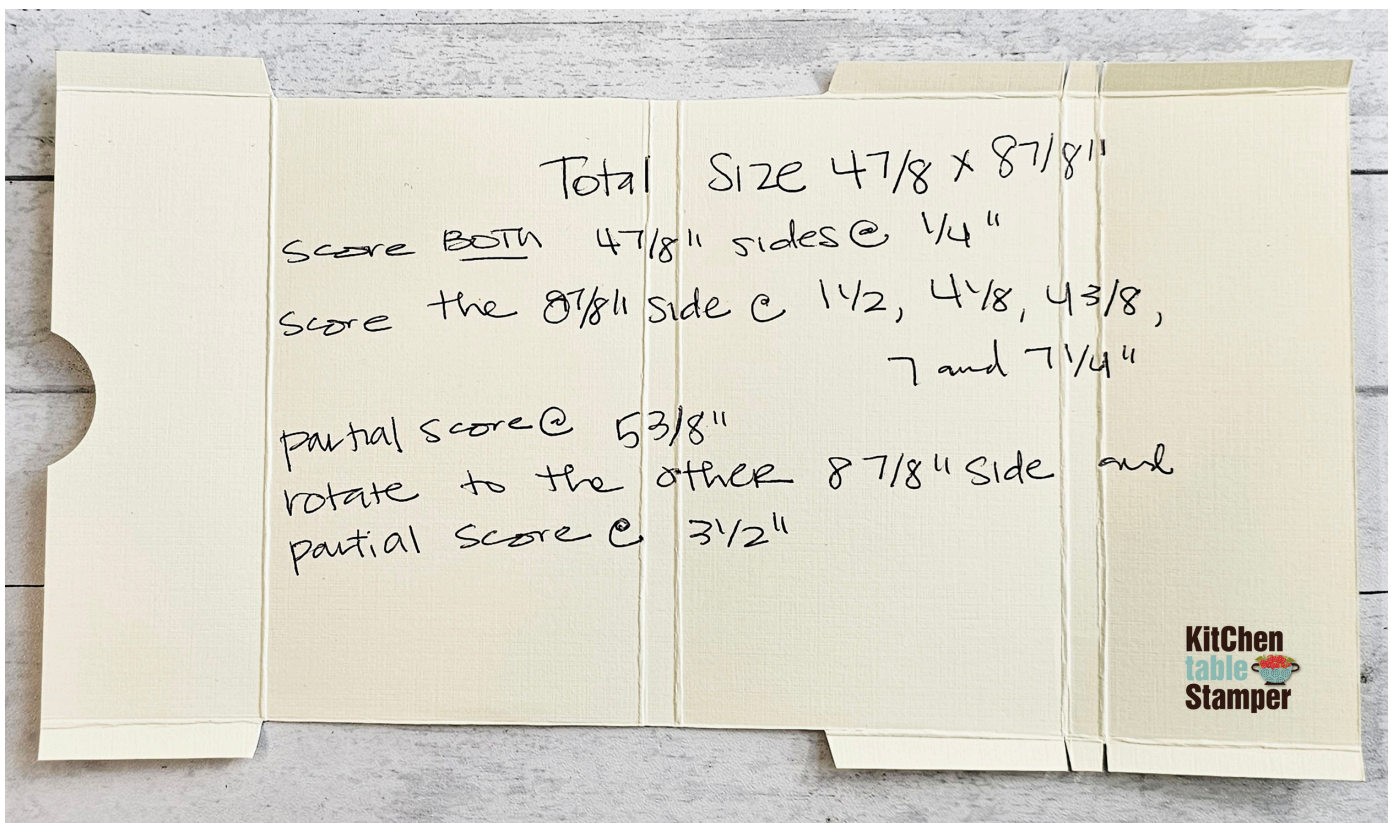 Total Size 4 7/8 x 8 7/8"
Score BOTH 4 7/8" sides @ 1/4"
Score the 8 7/8" side @ 1 1/2, 4 1/8, 4 3/8,
7 and 7 1/4"
partial score @ 5 3/8"
rotate to the other 8 7/8" side and
partial score @ 3 1/2"
KitChen
table
Stamper